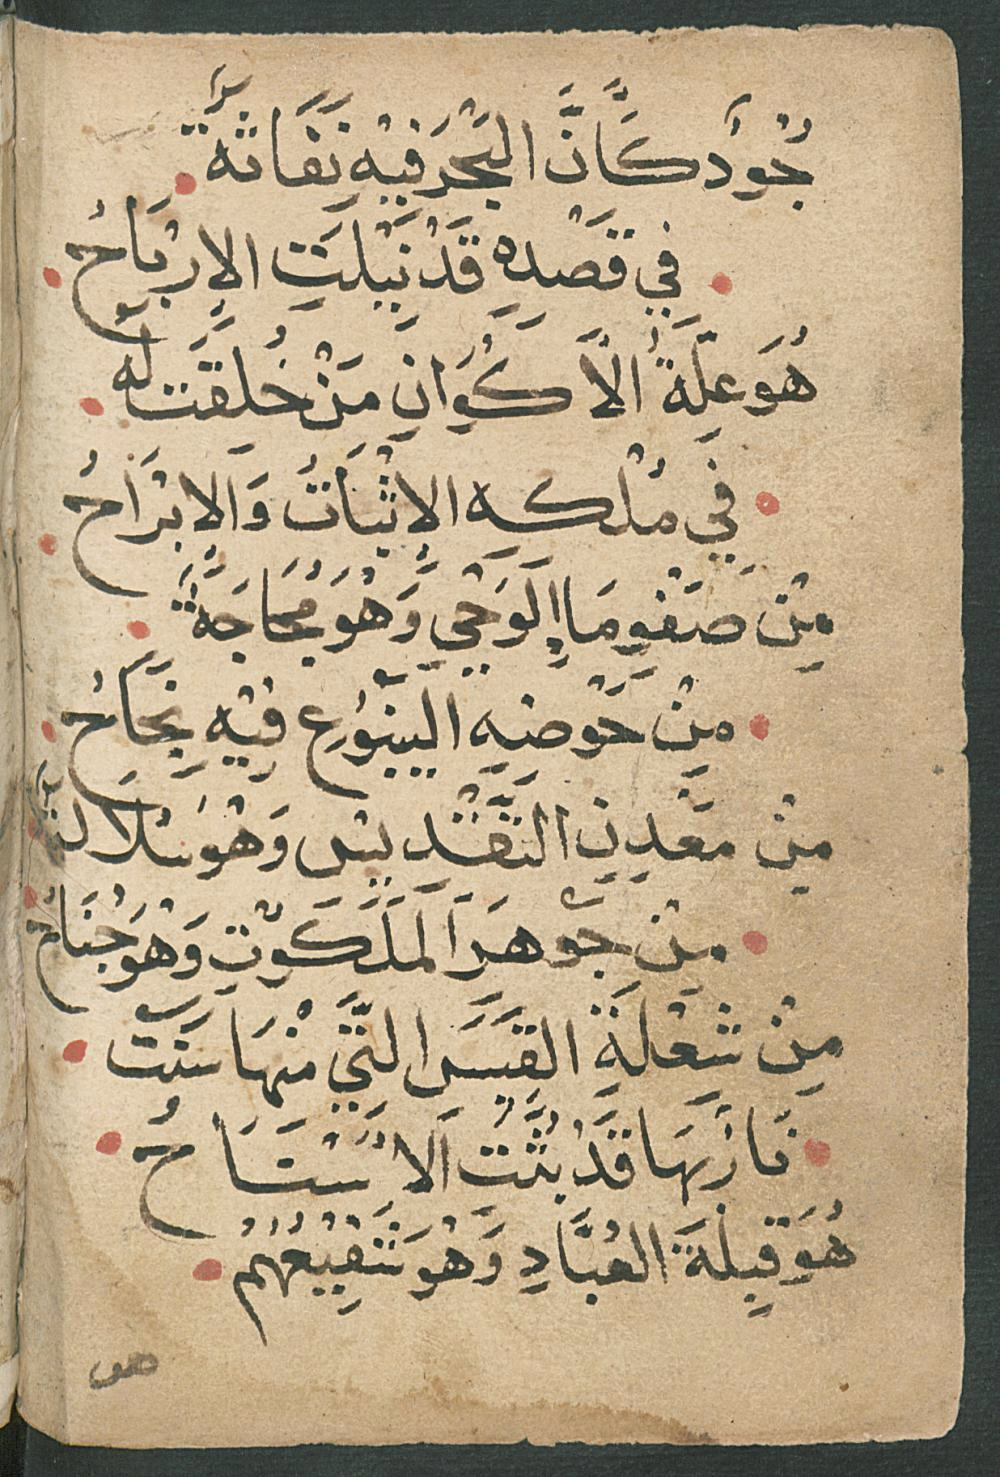 جُودٌ كَأَنَّ البَحْرَ فِيْهِ نَفَاثَةٌ
فِي قَصْدِهِ قَدْ نِيْلَتِ الارْبَاحُ
هُوَ عِلَّةُ الاَكْوَانِ مَنْ خُلِقَتْ لَهُ
فِي مُلْكِهِ الاِثْبَاتُ وَالاِبْرَاحُ
مِنْ صَفْوِ مَاءِ الوَحْيِ وَهْوَ مُجَاجَةٌ
مِنْ حَوْضِهِ اليَنْبُوعُ فِيْهِ نَجَاحُ
مِنْ مَعْدِنِ التَّقْدِيْسِ وَهْوَ سُلَالَةٌ
مِنْ جَوْهَرِ المَلَكُوْتِ وَهْوَ جَنَاحُ
مِنْ شُعْلَةِ القَبَسِ الَّتِي مِنْهَا سَنَتْ
نَارٌ بِهَا قَدْ بُثَّتْ الا
هُوَ قِبْلَةُ العُبَّادِ وَهْوَ شَفِيْعُهُمْ